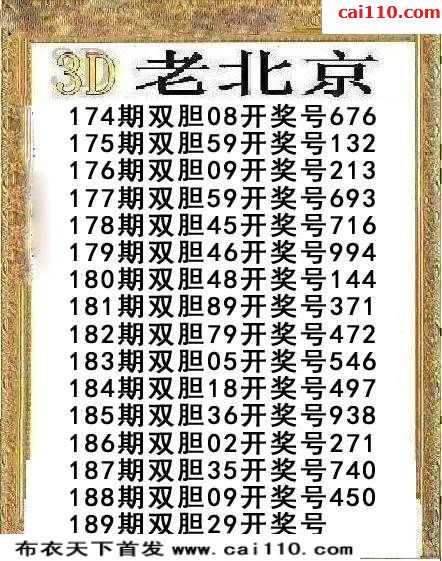 cai110.com
3D 老北京
174期双胆08开奖号676
175期双胆59开奖号132
176期双胆09开奖号213
177期双胆59开奖号693
178期双胆45开奖号716
179期双胆46开奖号994
180期双胆48开奖号144
181期双胆89开奖号371
182期双胆79开奖号472
183期双胆05开奖号546
184期双胆18开奖号497
185期双胆36开奖号938
186期双胆02开奖号271
187期双胆35开奖号740
188期双胆09开奖号450
189期双胆29开奖号
布衣天下首发 www.cai110.com